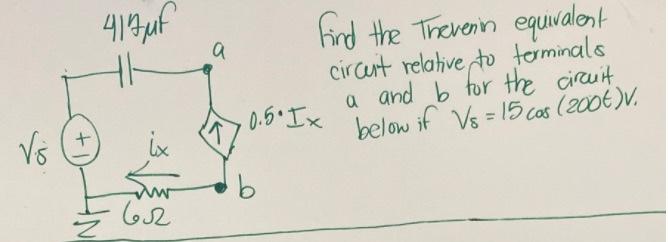 417µF
a
0.5·Ix
Vs
+
-
ix
6Ω
b
Find the Thevenin equivalent
circuit relative to terminals
a and b for the circuit
below if Vs = 15 cos (200t)V.